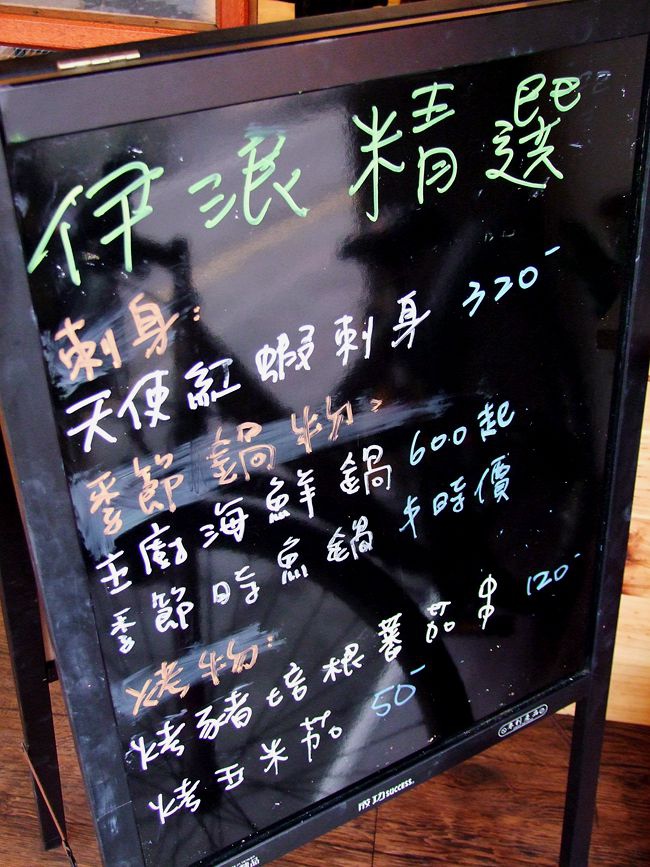 伊浪精選
刺身：
天使紅蝦刺身 320-
季節鍋物：
主廚海鮮鍋 600起
季節時魚鍋 $時價
烤物：
烤豬培根蕃茄串 120-
烤玉米茄 50-
成功 success.